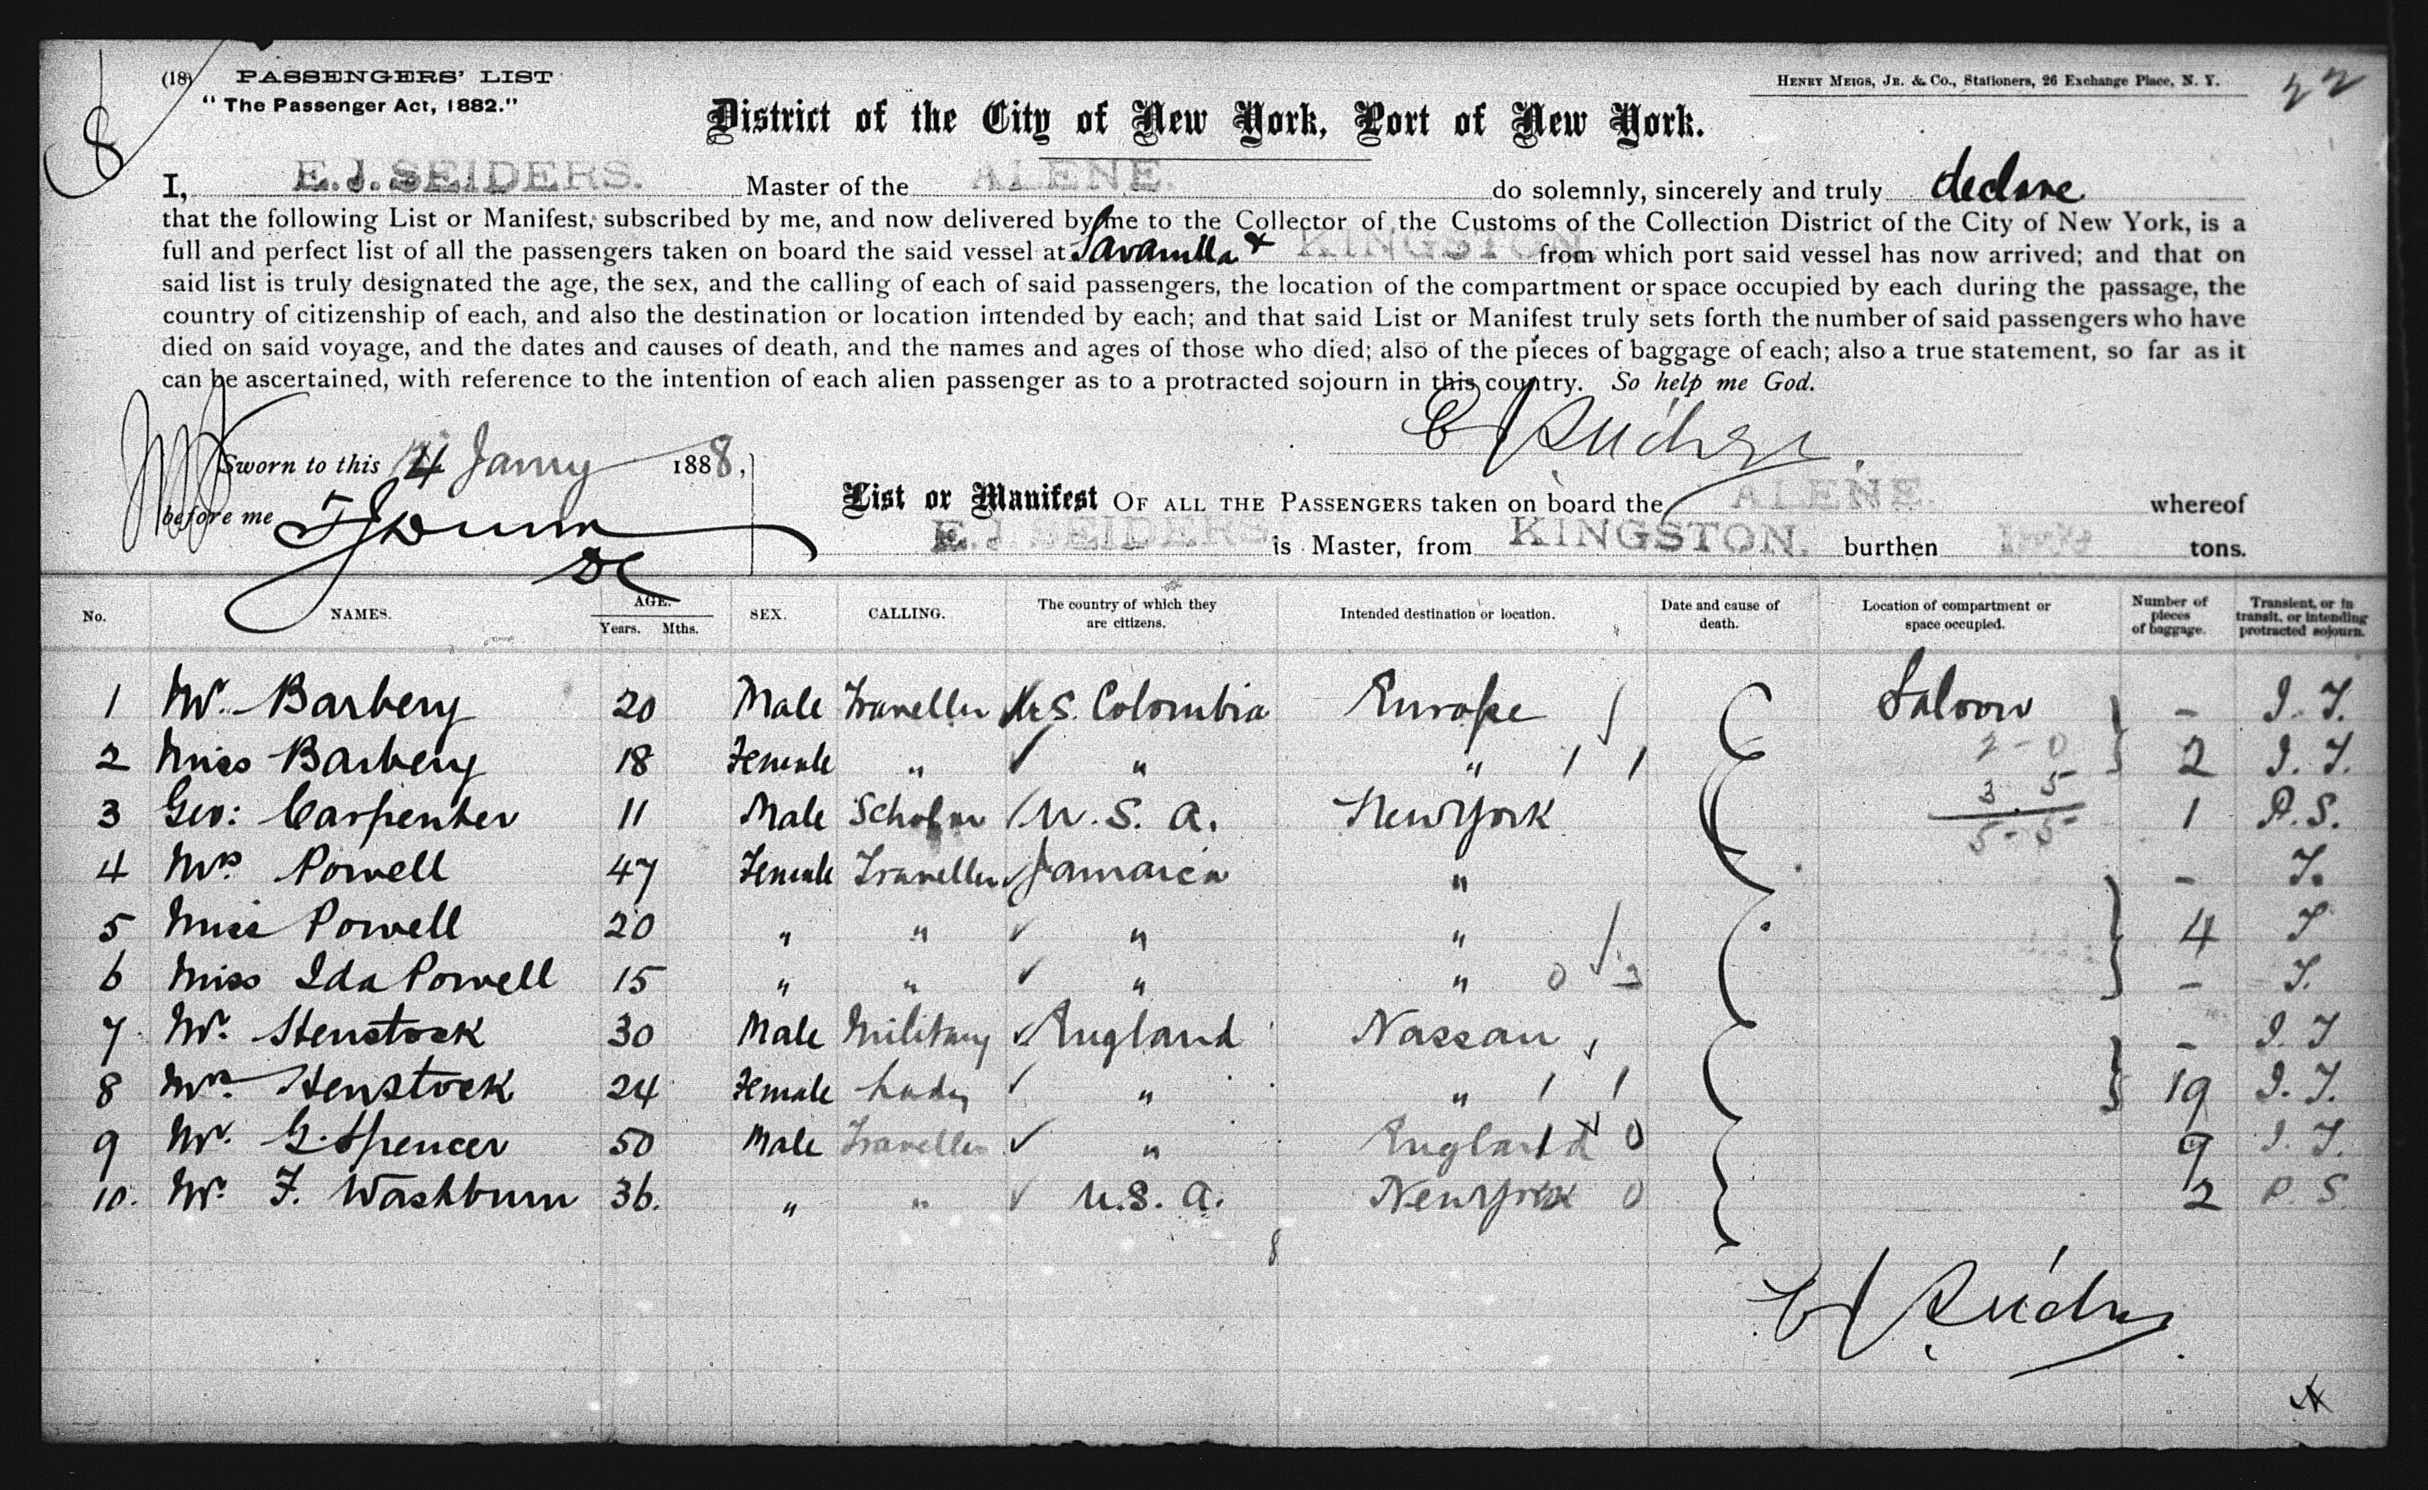 (18) PASSENGERS' LIST
"The Passenger Act, 1882."
HENRY MEIGS, JR. & CO., Stationers, 26 Exchange Place, N. Y.
22
8
District of the City of New York, Port of New York.
I, E. J. SEIDERS. Master of the ALENE. do solemnly, sincerely and truly declare
that the following List or Manifest, subscribed by me, and now delivered by me to the Collector of the Customs of the Collection District of the City of New York, is a
full and perfect list of all the passengers taken on board the said vessel at Savanilla & KINGSTON from which port said vessel has now arrived; and that on
said list is truly designated the age, the sex, and the calling of each of said passengers, the location of the compartment or space occupied by each during the passage, the
country of citizenship of each, and also the destination or location intended by each; and that said List or Manifest truly sets forth the number of said passengers who have
died on said voyage, and the dates and causes of death, and the names and ages of those who died; also of the pieces of baggage of each; also a true statement, so far as it
can be ascertained, with reference to the intention of each alien passenger as to a protracted sojourn in this country. So help me God.
Sworn to this 4 Jany 1888,
before me
List or Manifest OF ALL THE PASSENGERS taken on board the ALENE. whereof
E. J. SEIDERS is Master, from KINGSTON. burthen tons.
No. NAMES. AGE. Years. Mths. SEX. CALLING. The country of which they are citizens. Intended destination or location. Date and cause of death. Location of compartment or space occupied. Number of pieces of baggage. Transient, or in transit, or intending protracted sojourn.
1 Mr. Barbery 20 Male Traveller U.S. Colombia Europe Saloon - I. T.
2 Miss Barbery 18 Female " " " 1 1 2-0 2 I. T.
3 Geo: Carpenter 11 Male Scholar U. S. A. New York 3 5 1 P. S.
5-5
4 Mrs. Powell 47 Female Traveller Jamaica " - T.
5 Miss Powell 20 " " " " 4 T
6 Miss Ida Powell 15 " " " " 0 3 - T.
7 Mr. Henstock 30 Male Military England Nassau - I. T
8 Mrs. Henstock 24 Female Lady " " 1 1 19 I. T.
9 Mr. G. Spencer 50 Male Traveller " England 0 9 I. T.
10. Mr. F. Washburn 36. " " U. S. A. New York 0 2 P. S.